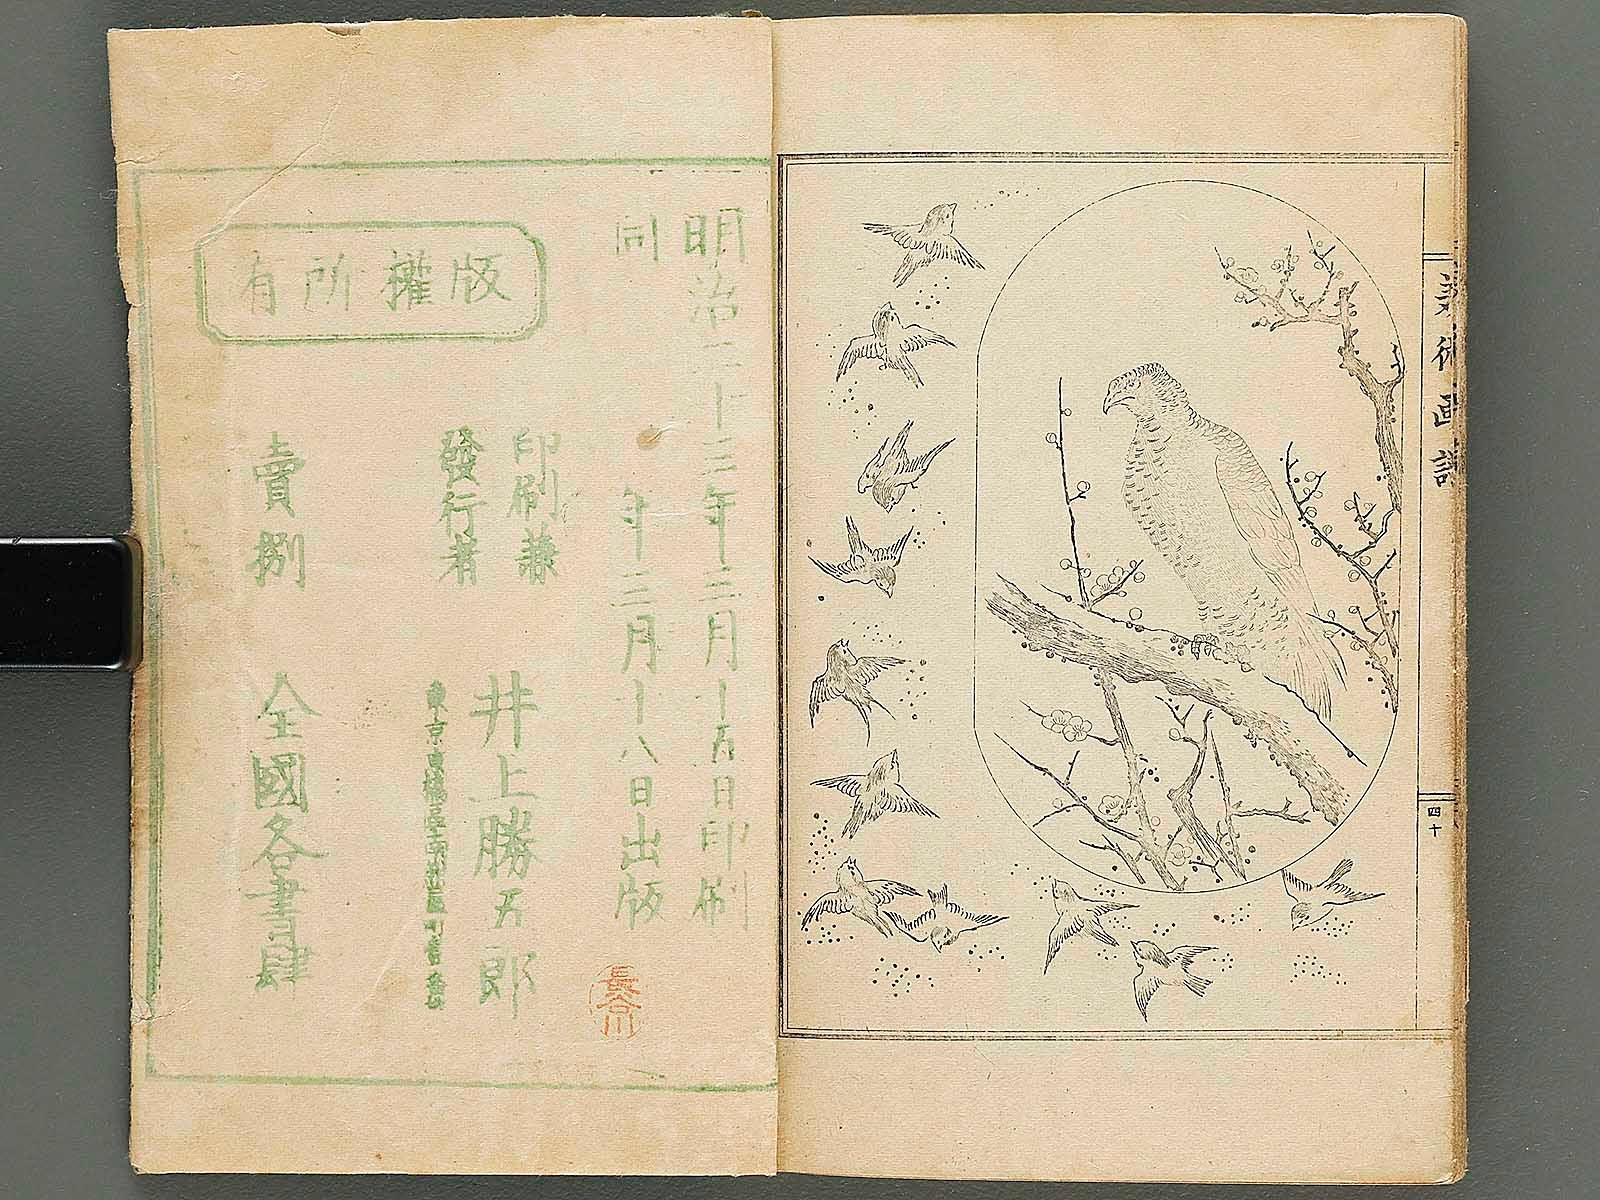 美術画譜
四十
明治二十三年三月十五日印刷
同年三月十八日出版
版權所有
印刷兼
發行者
井上勝五郎
東京京橋區
賣捌 全國各書肆
長谷川